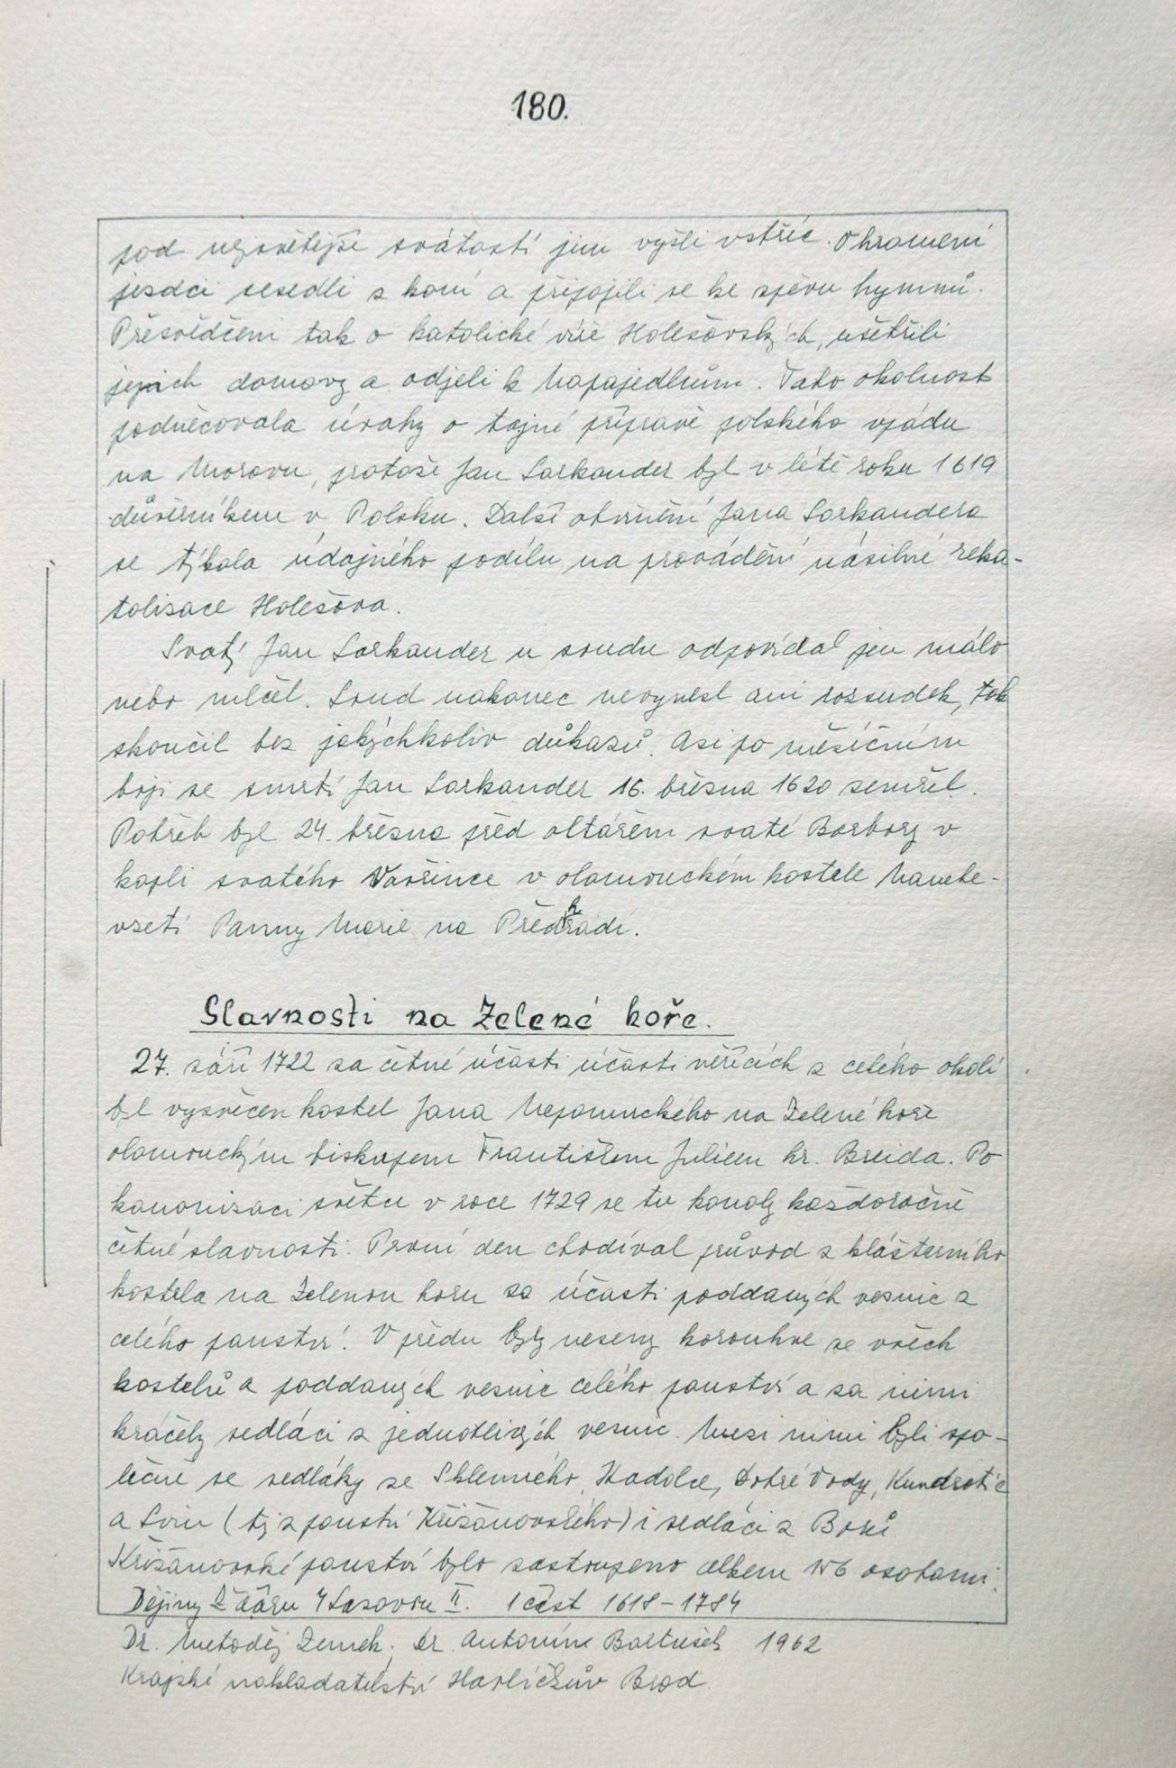 180.
pod nejsvětější svátostí jim vyšli vstříc. Ohromeni
jezdci sesedli z koní a připojili se ke zpěvu hymnů.
Přesvědčeni tak o katolické víře Holešovských, ušetřili
jejich domovy a odjeli k Napajedlům. Tato okolnost
podněcovala úvahy o tajné přípravě polského vpádu
na Moravu, protože Jan Sarkander byl v létě roku 1619
důvěrníkem v Polsku. Další obvinění Jana Sarkandera
se týkala údajného podílu na provádění násilné reka-
tolisace Holešova.
Svatý Jan Sarkander u soudu odpovídal jen málo
nebo mlčel. Soud nakonec nevynesl ani rozsudek, tak
skončil bez jakýchkoliv důkazů. Asi po měsíčním
boji se smrtí Jan Sarkander 16. března 1620 zemřel.
Pohřeb byl 24. března před oltářem svaté Barbory v
kapli svatého Vavřince v olomouckém kostele Nanebe-
vzetí Panny Marie na Předhradí.
Slavnosti na Zelené hoře.
27. září 1722 za četné účasti účasti věřících z celého okolí
byl vysvěcen kostel Jana Nepomuckého na Zelené hoře
olomouckým biskupem Františkem Juliem hr. Breida. Po
kanonizaci světce v roce 1729 se tu konaly každoročně
četné slavnosti. První den chodíval průvod z klášterního
kostela na Zelenou horu za účasti poddaných vesnic z
celého panství. V předu byly neseny korouhve ze všech
kostelů a poddaných vesnic celého panství a za nimi
kráčely sedláci z jednotlivých vesnic. Mezi nimi byli spo-
lečně se sedláky ze Sklenného, Hadolce, Dobré Vody, Kundratic
a Svin (tj z panství Křižanovského) i sedláci z Borů
Křižanovské panství bylo zastoupeno celkem 156 osobami.
Dějiny Žďáru n Sázavou II. 1 část 1618-1784
Dr. Metoděj Zemek, Dr. Antonín Bartušek 1962
Krajské nakladatelství Havlíčkův Brod.